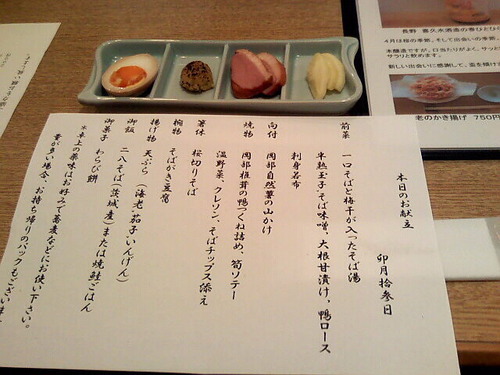 本日のお献立
卯月拾参日
前菜 一口そばと梅干が入ったそば湯
半熟玉子、そば味噌、大根甘漬け、鴨ロース
刺身若布
向付 岡部自然薯の山かけ
焼物 岡部椎茸の鴨つくね詰め、筍ソテー
温野菜、クレソン、そばチップス添え
箸休 桜切りそば
椀物 そばがき豆腐
揚げ物 天ぷら（海老、茄子、いんげん）
御飯 二八そば（茨城産）または焼鮭ごはん
御菓子 わらび餅
※卓上の薬味はお好みで蕎麦などにお使い下さい。
量が多い場合、お持ち帰りのパックもございま
長野 喜久水酒造の春ひとひ
4月は桜の季節、そして出会いの季節
本醸造ですが、口当たりがよく、サッ
サラリと飲めます。
新しい出会いに感謝して、盃を傾け
老のかき揚げ 750円